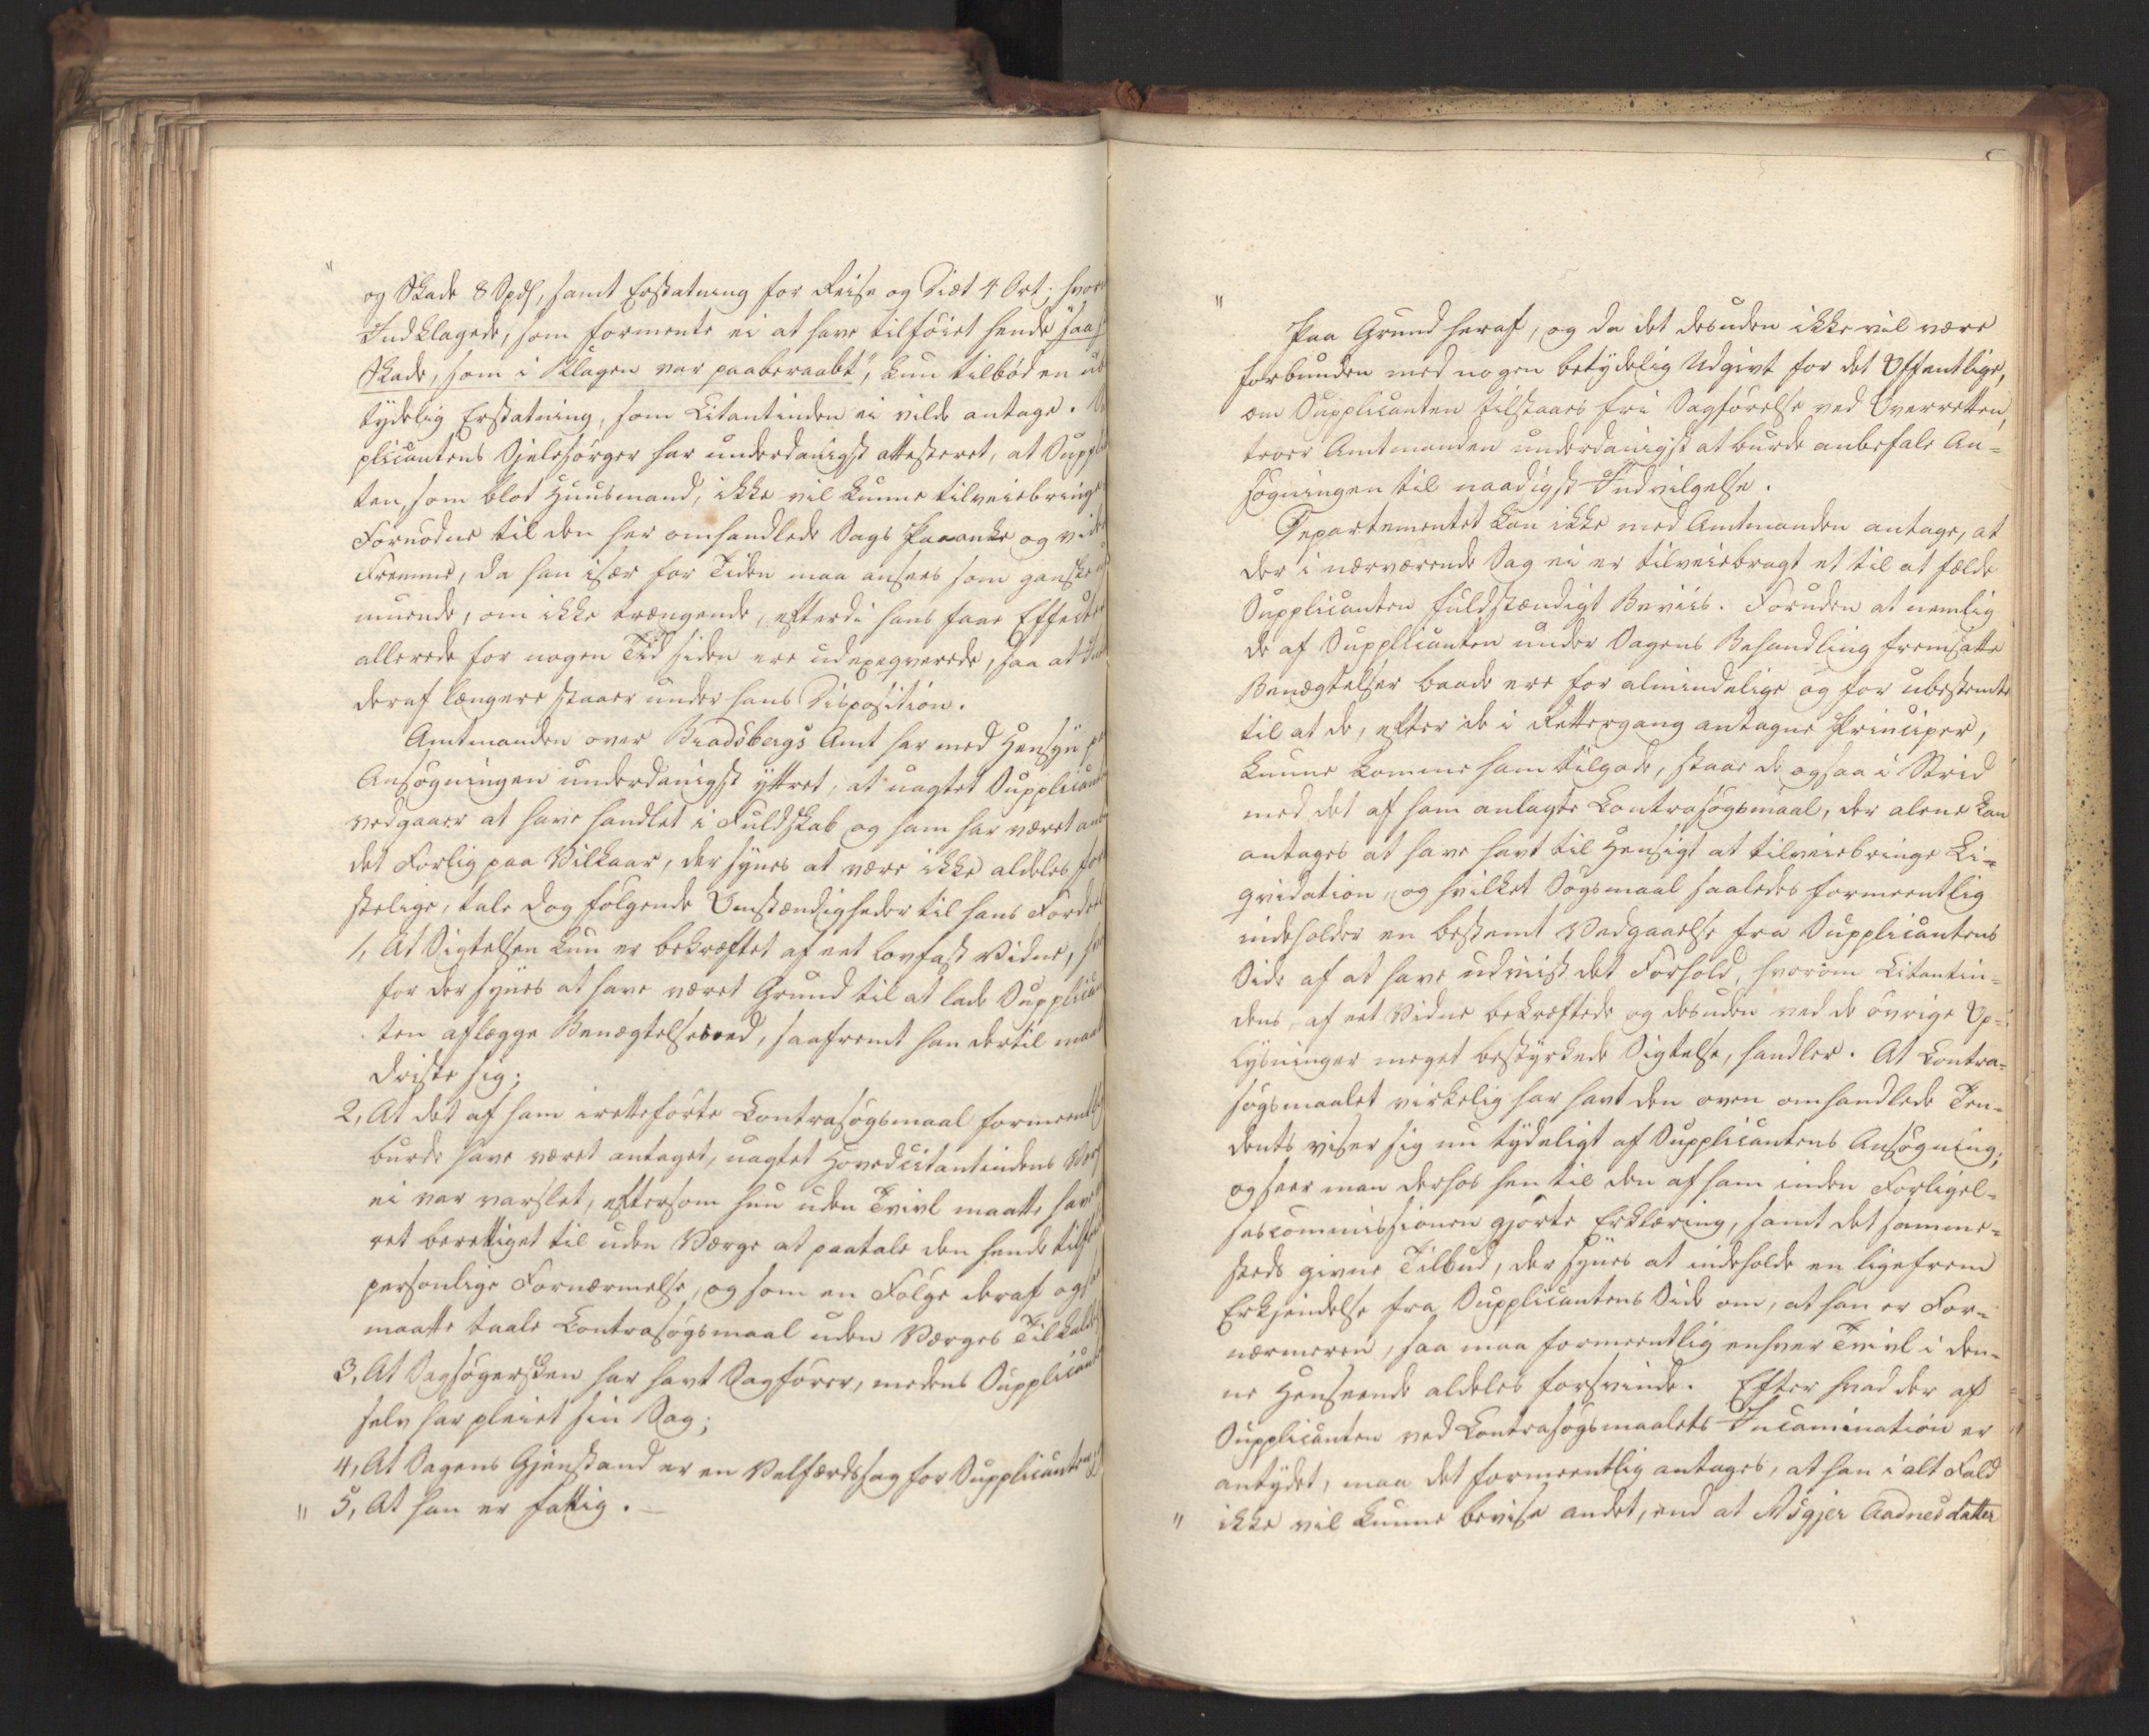 og Skade 8 Spdl, samt Erstatning for Reise og Diæt 4 Ort; hvor
Indklagede, som formente ei at have tilføiet hende "saa
Skade, som i Klagen var paaberaabt", kun tilbød en ub
tydelig Erstatning, som Citantinden ei vilde antage.
plicantens Sjelesørger har underdanigst attesteret, at Suppli
ten, som blot Huusmand, ikke vil kunne tilveiebringe
Fornødne til den her omhandlede Sags Paaanke og vide
Fremme, da han især for Tiden maa ansees som ganske
muende, om ikke trængende, efterdi hans faae Effecter
allerede for nogen Tid siden ere udexeqverede, saa at Int
deraf længere staaer under hans Disposition.
Amtmanden over Bradsbergs Amt har med Hensyn pa
Ansøgningen underdanigst yttret, at uagtet Supplicant
vedgaaer at have handlet i Fuldskab og ham har været anb
det Forlig paa Vilkaar, der synes at være ikke aldeles for
stelige, tale dog følgende Omstændigheder til hans Fordeel
1, At Sigtelsen kun er bekræftet af eet lovfast Vidne, hvor
for der synes at have været Grund til at lade Supplican
ten aflægge Benægtelseseed, saafremt han dertil maat
driste sig;
2, At det af ham iretteførte Contrasøgsmaal formeentl
burde have været antaget, uagtet Hovedcitantindens Vær
ei var varslet, eftersom hun uden Tvivl maatte have
ret berettiget til uden Værge at paatale den hende tilf
personlige Fornærmelse, og som en Følge deraf ogs
maatte taale Contrasøgsmaal uden Værges Tilkald
3, At Sagsøgersken har havt Sagfører, medens Supplicant
selv har pleiet sin Sag;
4, At Sagens Gjenstand er en Velfærdssag for Supplicanten
" 5, At han er fattig. –
"
Paa Grund heraf, og da det desuden ikke vil være
forbunden med nogen betydelig Udgivt for det Offentlige,
om Supplicanten tilstaaes fri Sagførelse ved Overretten,
troer Amtmanden underdanigst at burde anbefale An=
søgningen til naadigst Indvilgelse.
Departementet kan ikke med Amtmanden antage, at
der i nærværende Sag ei er tilveiebragt et til at fælde
Supplicanten fuldstændigt Beviis. Foruden at nemlig
de af Supplicanten under Sagens Behandling fremsatte
Benægtelser baade ere for almindelige og for ubestemte
til at de, efter de i Rettergang antagne Principer,
kunne komme ham tilgode, staae de ogsaa i Strid
med det af ham anlagte Contrasøgsmaal, der alene kan
antages at have havt til Hensigt at tilveiebringe Li=
qvidation, og hvilket Søgsmaal saaledes formeentlig
indeholder en bestemt Vedgaaelse fra Supplicantens
Side af at have udviist det Forhold, hvorom Citantin=
dens, af eet Vidne bekræftede og desuden ved de øvrige Op=
lysninger meget bestyrkede Sigtelse, handler. At Contra=
søgsmaalet virkelig har havt den oven omhandlede Ten=
dents viser sig nu tydeligt af Supplicantens Ansøgning;
og seer man derhos hen til den af ham inden Forligel=
sescommissionen gjorte Erklæring, samt det samme=
steds givne Tilbud, der synes at indeholde en ligefrem
Erkjendelse fra Supplicantens Side om, at han er For=
nærmeren, saa maa formeentlig enhver Tvivl i den=
ne Henseende aldeles forsvinde. Efter hvad der af
Supplicanten ved Contrasøgsmaalets Incamination er
antydet, maa det formeentlig antages, at han i alt Fald
" ikke vil kunne bevise andet, end at Asgjer Aadnesdatter